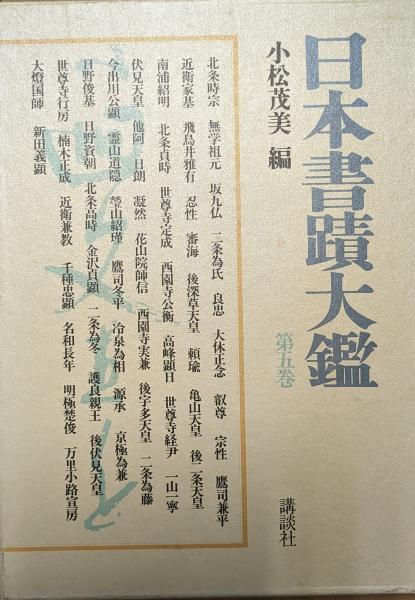 日本書蹟大鑑
第五巻
小松茂美 編
講談社
北条時宗 無学祖元 坂九仏 二条為氏 良忠 大休正念 叡尊 宗性 鷹司兼平
近衛家基 飛鳥井雅有 忍性 審海 後深草天皇 頼瑜 亀山天皇 後二条天皇
南浦紹明 北条貞時 世尊寺定成 西園寺公衡 高峰顕日 世尊寺経尹 一山一寧
伏見天皇 他阿 日朗 凝然 花山院師信 西園寺実兼 後宇多天皇 二条為藤
今出川公顕 霊山道隠 瑩山紹瑾 鷹司冬平 冷泉為相 源承 京極為兼
日野俊基 日野資朝 北条高時 金沢貞顕 二条為冬 護良親王 後伏見天皇
世尊寺行房 楠木正成 近衛兼教 千種忠顕 名和長年 明極楚俊 万里小路宣房
大燈国師 新田義顕